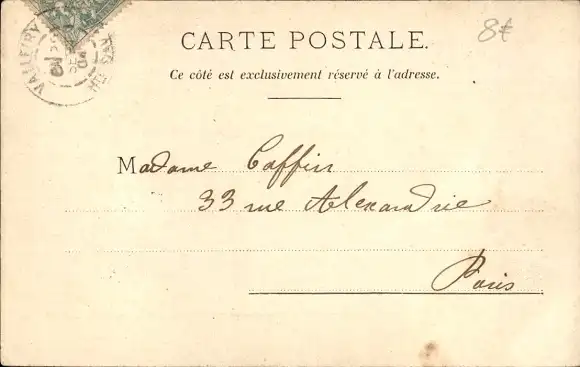 VALLEIRY
Hte SAV.
8f
CARTE POSTALE.
Ce côté est exclusivement réservé à l'adresse.
Madame Caffin
33 rue Alexandrie
Paris